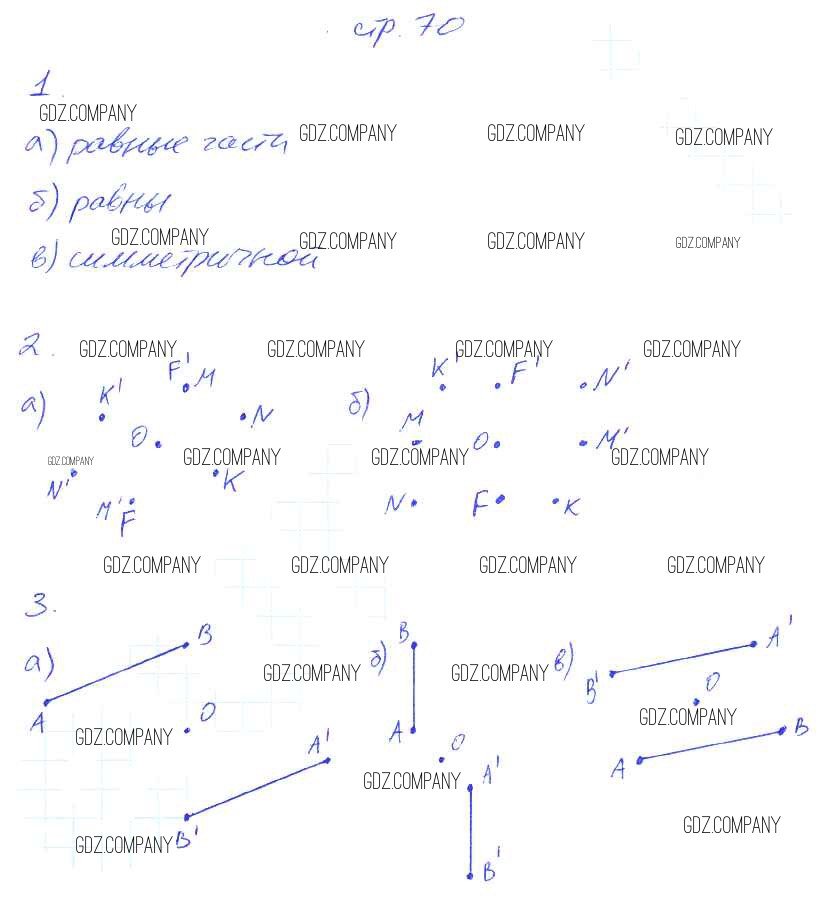 стр. 70
1.
GDZ.COMPANY
а) равные части GDZ.COMPANY GDZ.COMPANY GDZ.COMPANY
б) равны
GDZ.COMPANY GDZ.COMPANY GDZ.COMPANY GDZ.COMPANY
в) симметричной
2. GDZ.COMPANY GDZ.COMPANY GDZ.COMPANY GDZ.COMPANY
а) K' F' M N б) K' F' N'
O M O M'
GDZ.COMPANY GDZ.COMPANY GDZ.COMPANY GDZ.COMPANY
N' M' F K N F K
GDZ.COMPANY GDZ.COMPANY GDZ.COMPANY GDZ.COMPANY
3.
а) B б) B в) B' A'
GDZ.COMPANY GDZ.COMPANY
A O A O O
GDZ.COMPANY GDZ.COMPANY
A' A' A B
GDZ.COMPANY
GDZ.COMPANY B' B' GDZ.COMPANY